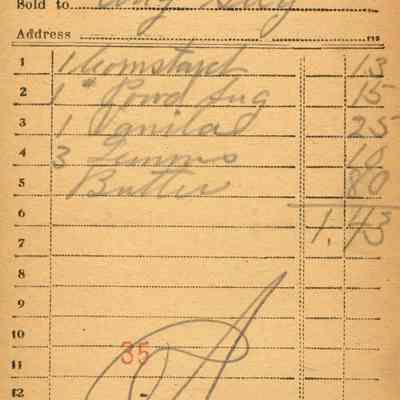 Sold to
Address
1 1 Cornstarch 13
2 1" Powd Sug 15
3 1 Vanilla 25
4 3 Lemons 10
5 Butter 80
6 1.43
7
8
9
10
35
11
12